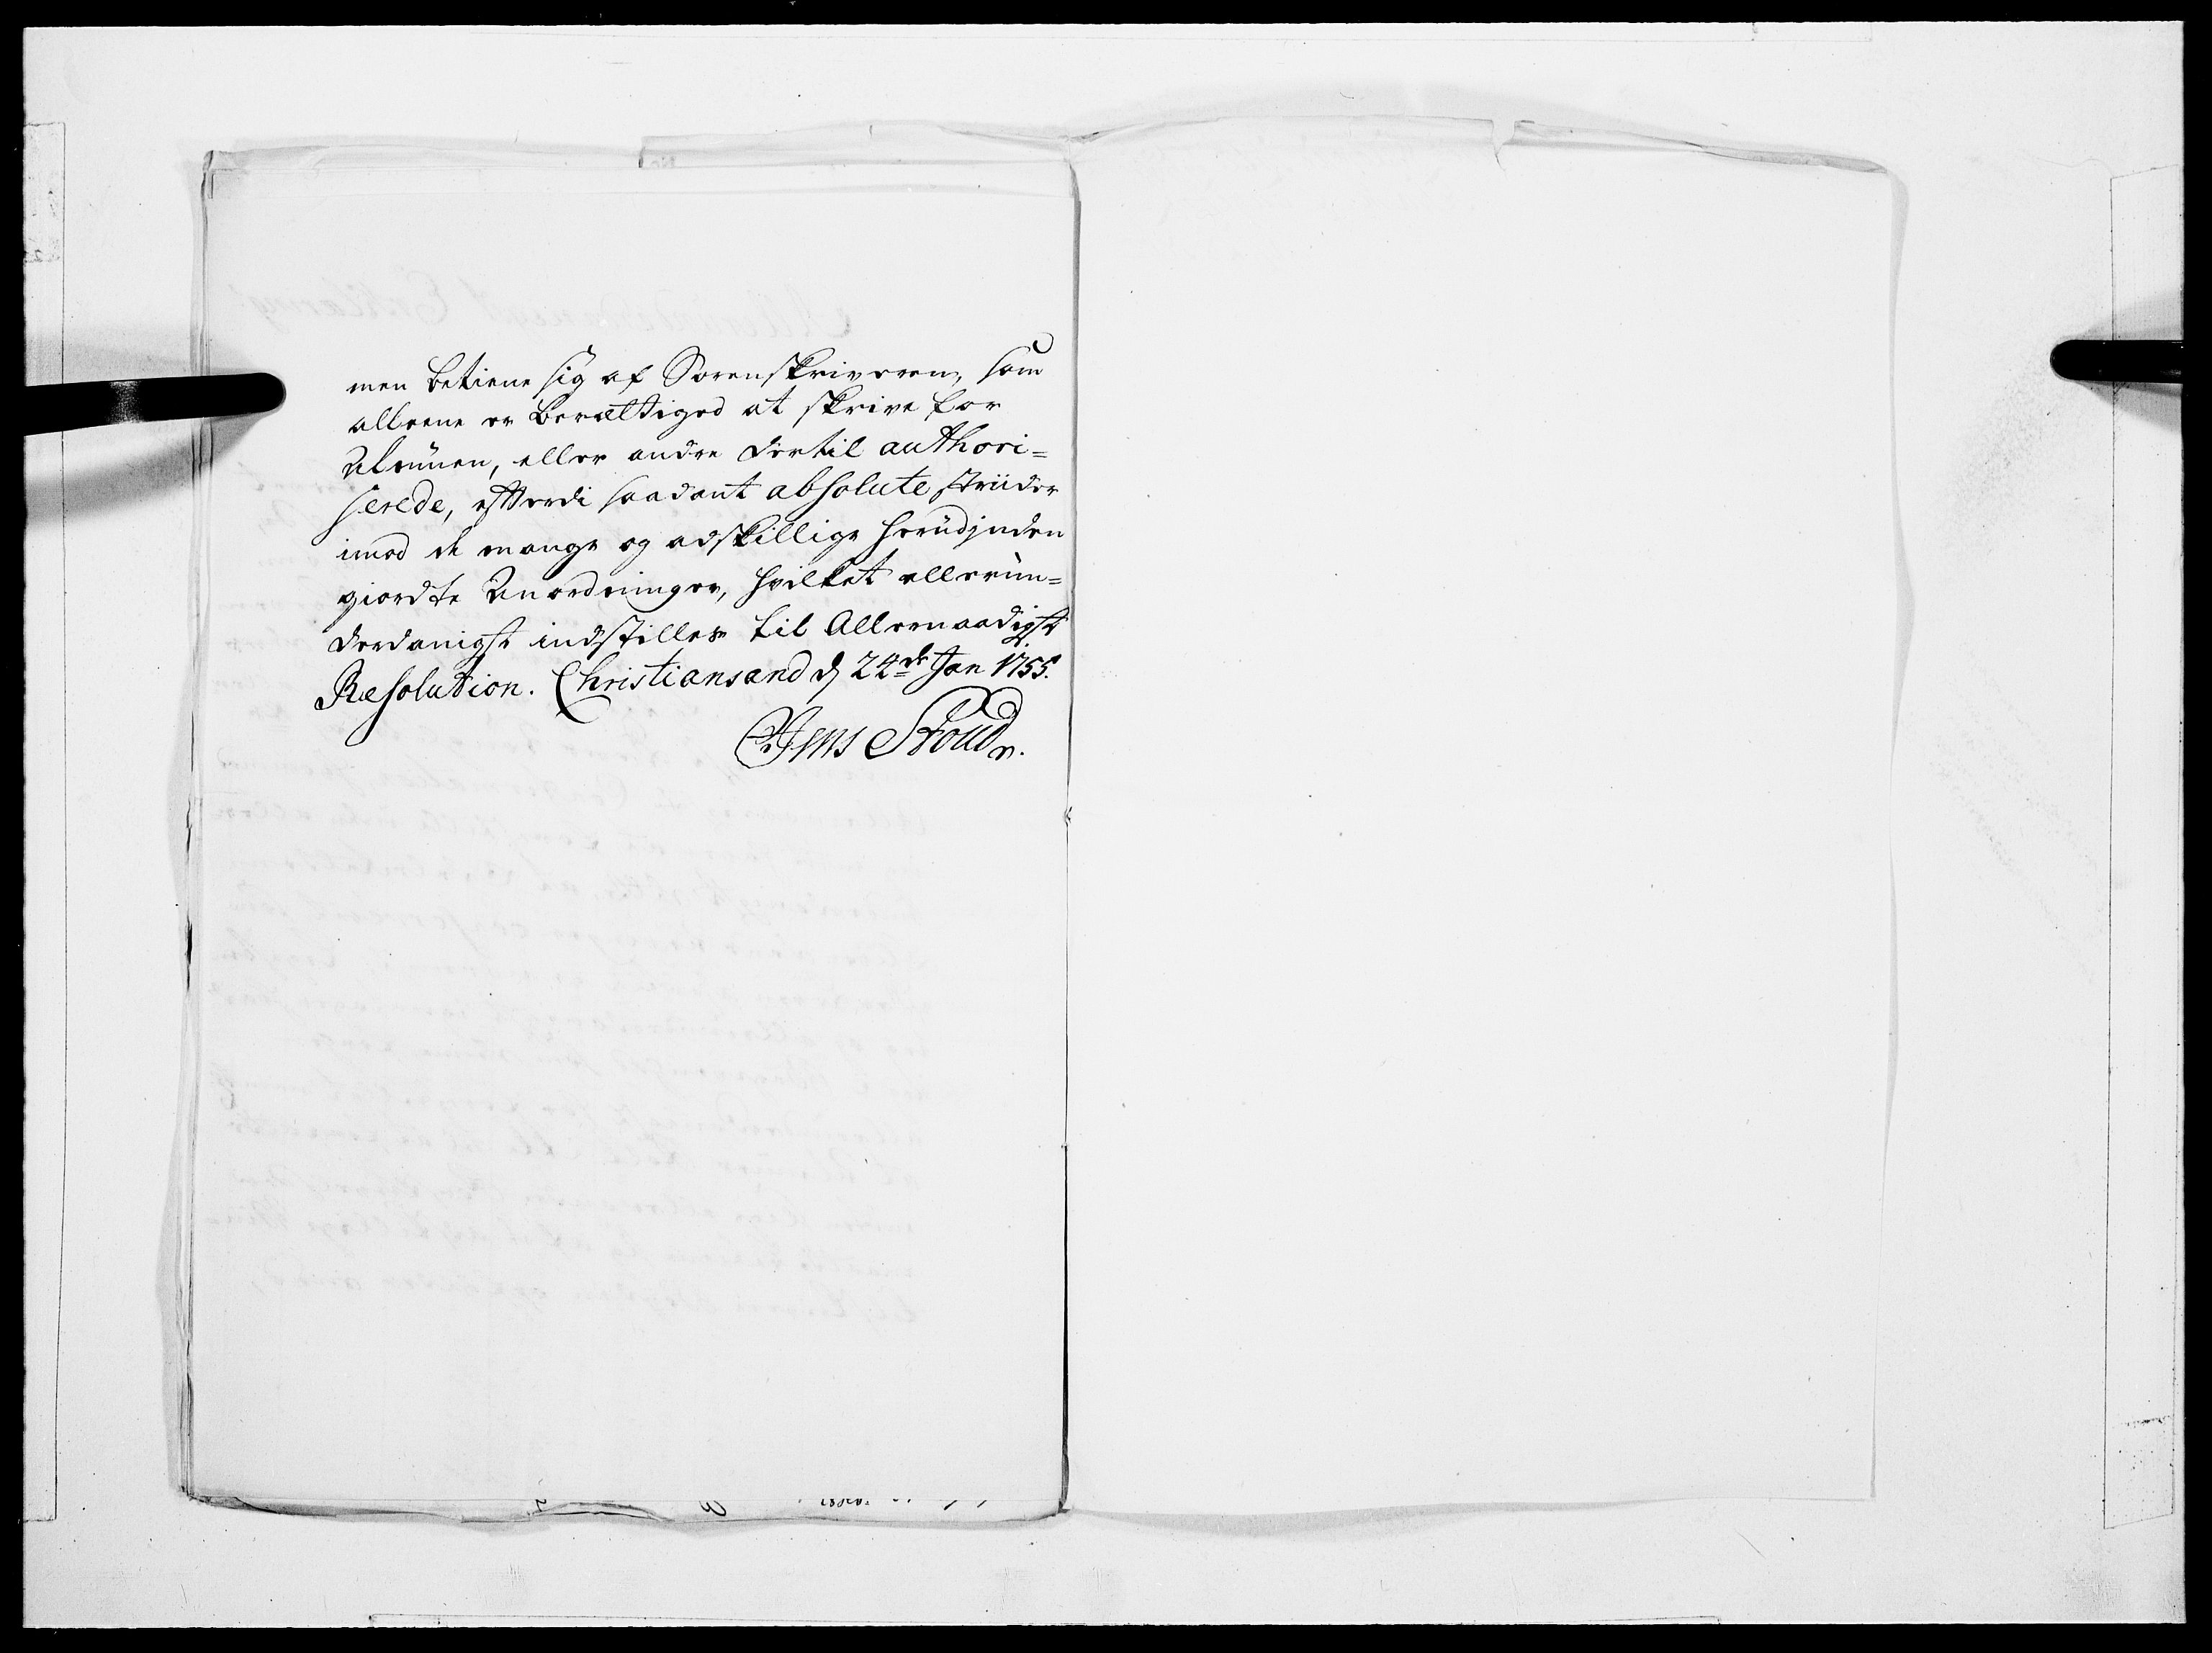 men betiene sig af Sorenskriveren, som
alleene er berættiged at skrive for
Almuen, eller andre dertil authori=
serede, efterdi saadant absolute striider
imod de mange og adskillige herudjnden
giordte Anordninger, hvilket allerun=
derdanigst indstilles til Allernaadigst
Resolution. Christiansand d 24de Jan 1755.
Jens Stoud